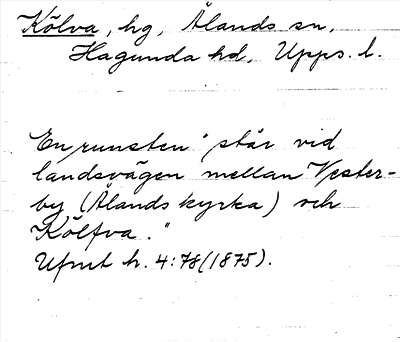 Kölva, hg, Ålands sn,
Hagunda hd, Upps. l.
En runsten "står vid
landsvägen mellan Vester-
by (Ålands kyrka) och
Kölfva."
Ufmt h. 4:78 (1875).